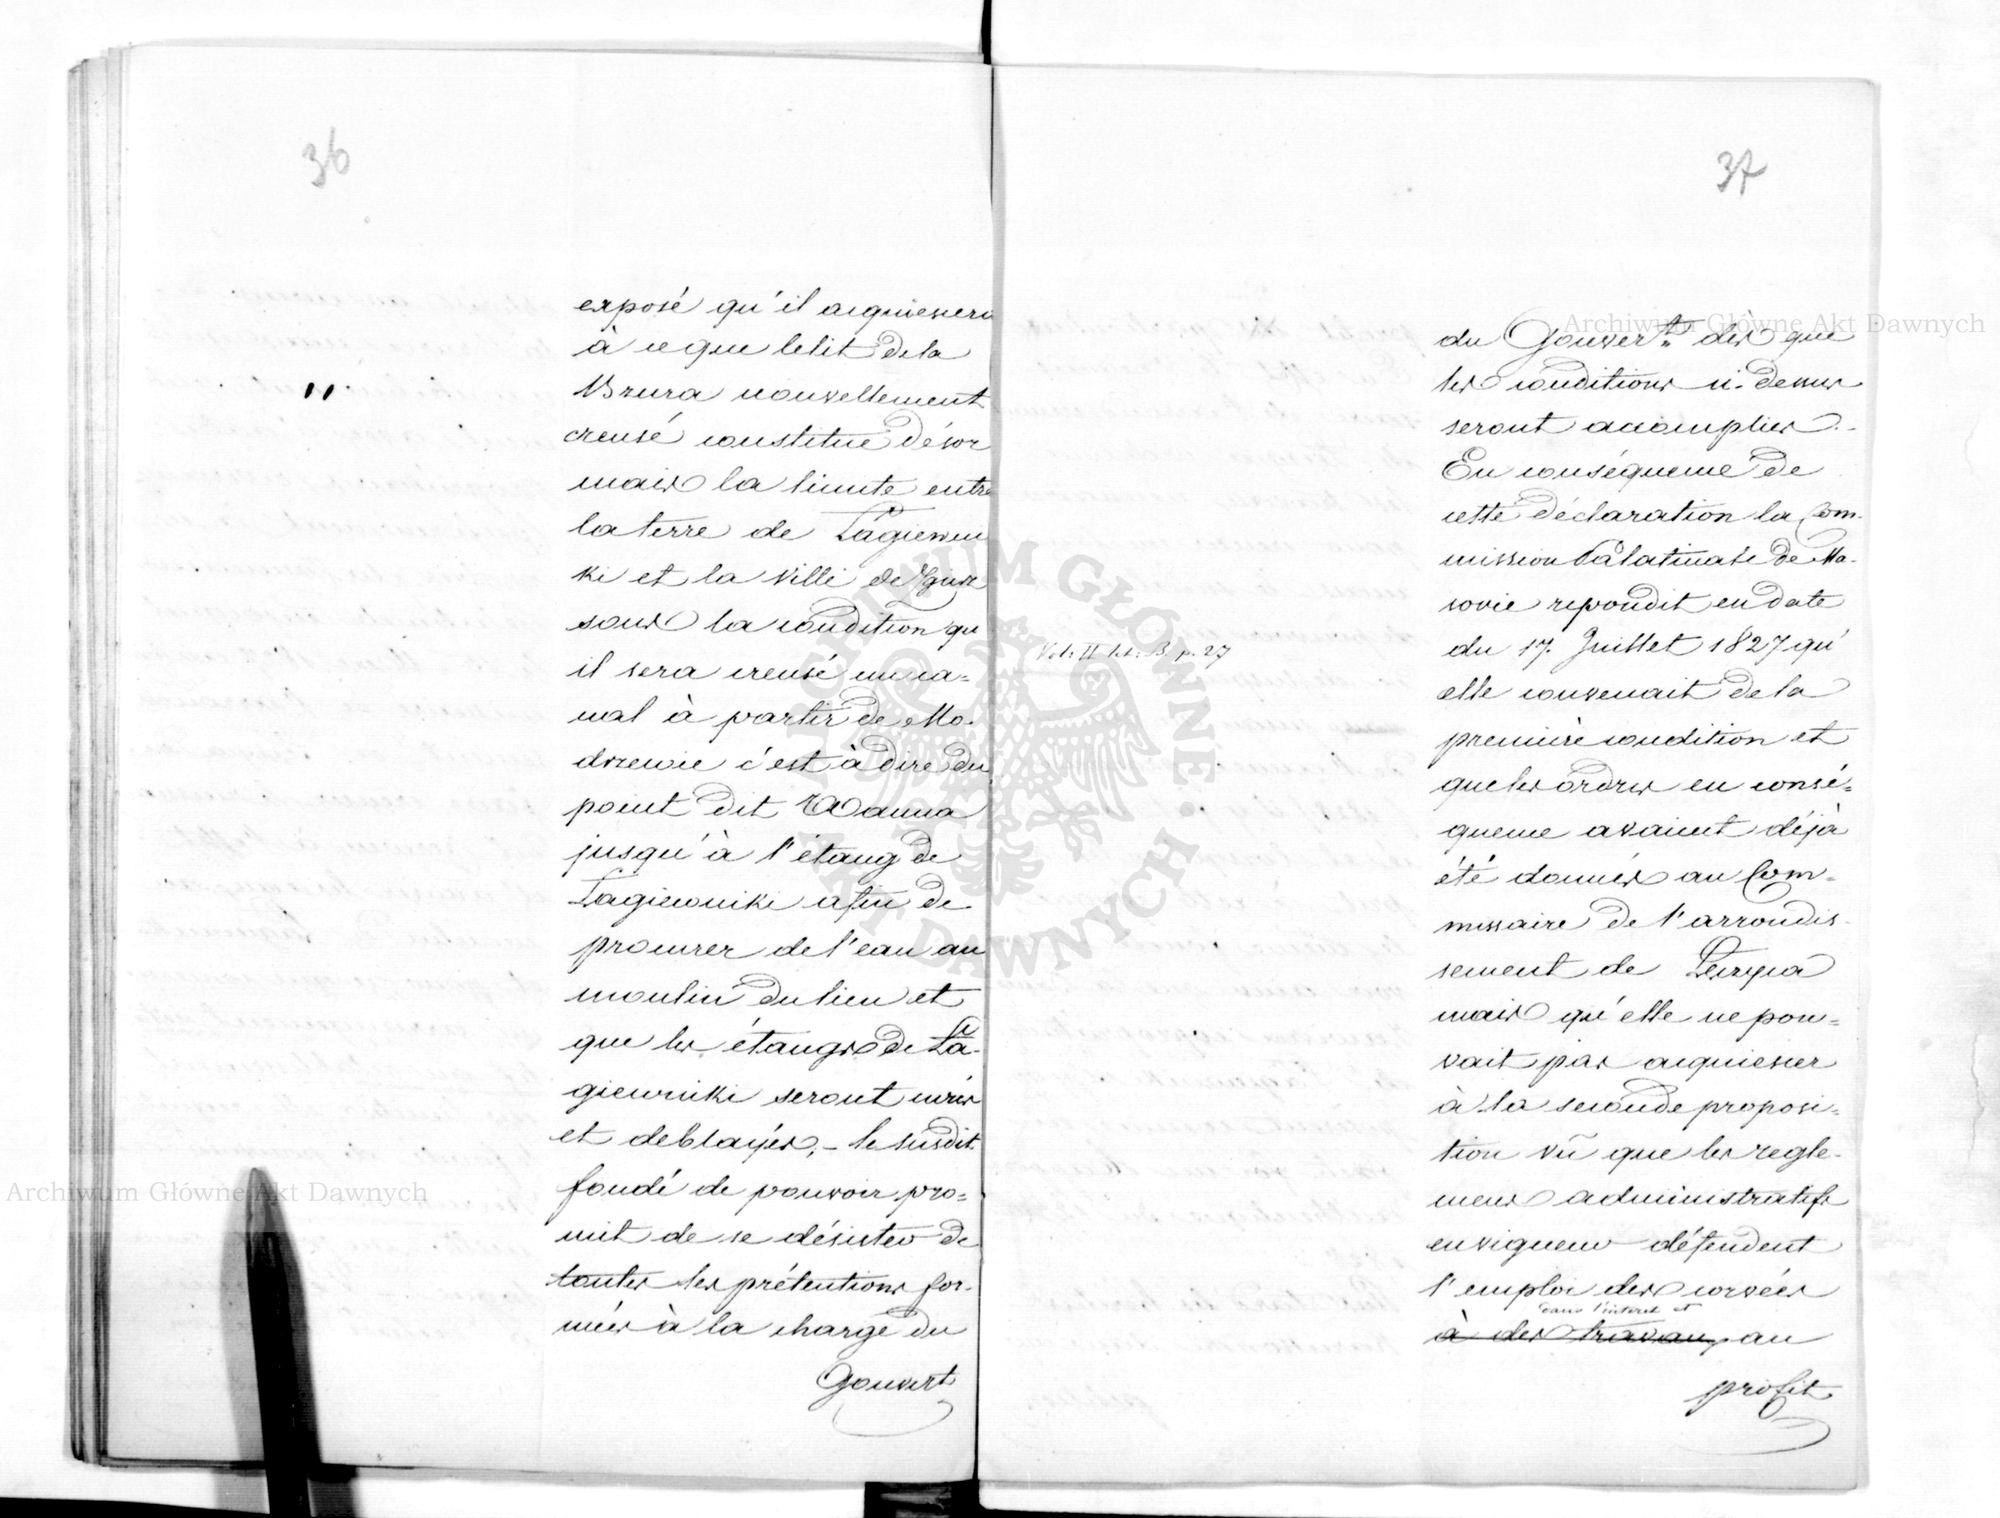 36
exposé qu'il acquiescera
à ce que le lit de la
Bzura nouvellement
creusé constitue désor
mais la limite entre
la terre de Łagiewni
ki et la ville de Zgierz
sous la condition qu'
il sera creusé un ca=
nal à partir de Mo-
drzewie c'est à dire du
point dit Wanna
jusqu'à l'étang de
Łagiewniki afin de
procurer de l'eau au
moulin du lieu et
que les étangs de Ła-
giewniki seront curés
et deblayés, – le susdit
fondé de pouvoir pro=
mit de se désister de
toutes les prétentions for-
mées à la charge du
Gouvert
37
du Gouvert dès que
les conditions ci-dessus
seront accomplies.-
En conséquence de
cette déclaration la Com-
mission Palatinale de Ma-
sovie repondit en date
Vol: II lit: B p. 27
du 17. Juillet 1827 qu'
elle convenait de la
première condition et
que les ordres en consé=
quence avaient déjà
été donnés au Com=
missaire de l'arrondis-
sement de Łęczyca
mais qu'elle ne pou=
vait pas acquiescer
à la seconde proposi=
tion vû que les regle-
mens administratifs
en vigueur défendent
l'emploi des corvées
dans l'interet et
à des travaux au
profit
Archiwum Główne Akt Dawnych
Archiwum Główne Akt Dawnych
ARCHIWUM GŁÓWNE · AKT DAWNYCH ·